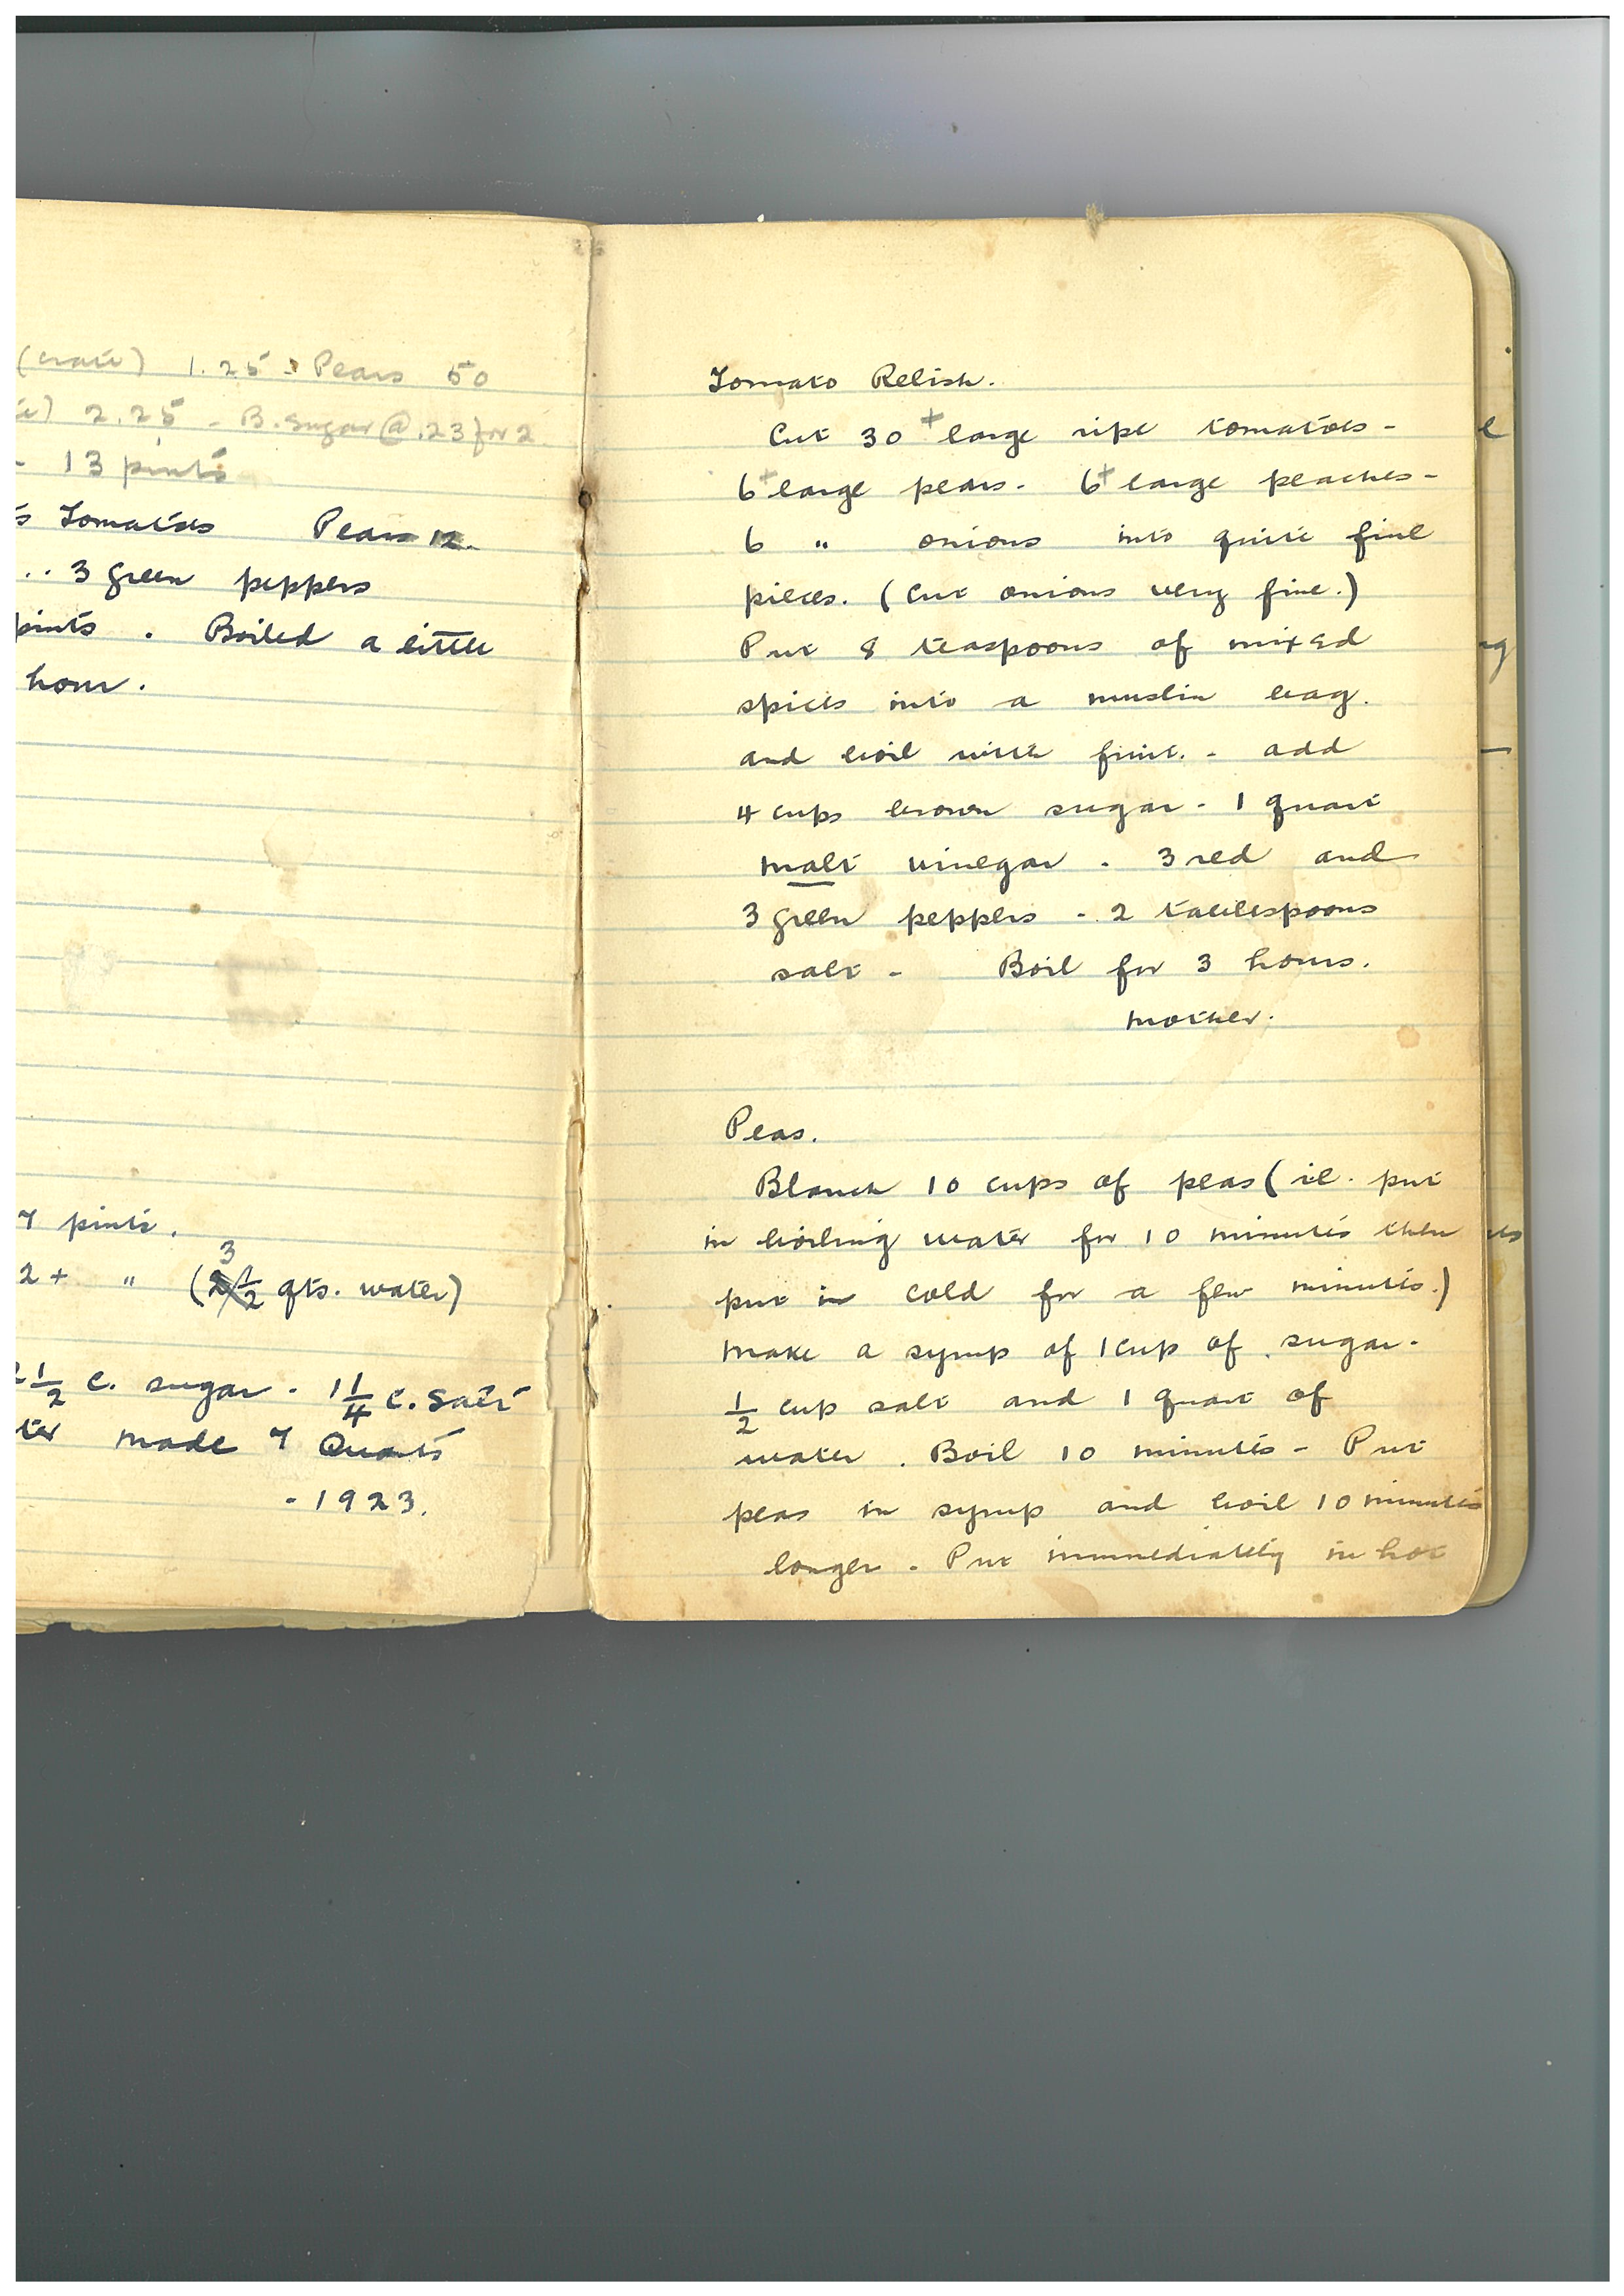 (crate) 1.25 - Pears 50
2.25 - B. Sugar @ .23 for 2
- 13 pints
Tomatoes Pears 12.
.. 3 green peppers
pints . Boiled a little
hour .
7 pints .
3
2 + " (2 1/2 qts. water)
1/2 c. sugar - 1 1/4 c. salt
ter made 7 Quarts
- 1923.
Tomato Relish.
Cut 30 + large ripe tomatoes -
6 + large pears - 6 + large peaches -
6 " onions into quite fine
pieces. (cut onions very fine.)
Put 8 teaspoons of mixed
spices into a muslin bag.
and boil with fruit. - add
4 cups brown sugar - 1 quart
malt vinegar - 3 red and
3 green peppers - 2 tablespoons
salt - Boil for 3 hours.
Mother.
Peas.
Blanch 10 cups of peas (ie. put
in boiling water for 10 minutes then
put in cold for a few minutes.)
Make a syrup of 1 cup of sugar -
1/2 cup salt and 1 quart of
water . Boil 10 minutes - Put
peas in syrup and boil 10 minutes
longer - Put immediately in hot